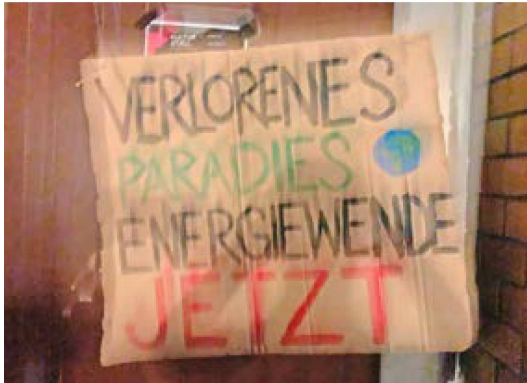 VERLORENES
PARADIES
ENERGIEWENDE
JETZT